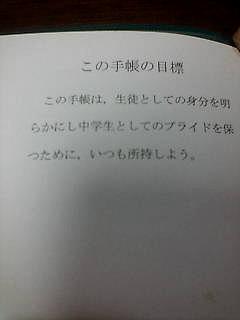 この手帳の目標
この手帳は，生徒としての身分を明
らかにし中学生としてのプライドを保
つために，いつも所持しよう。